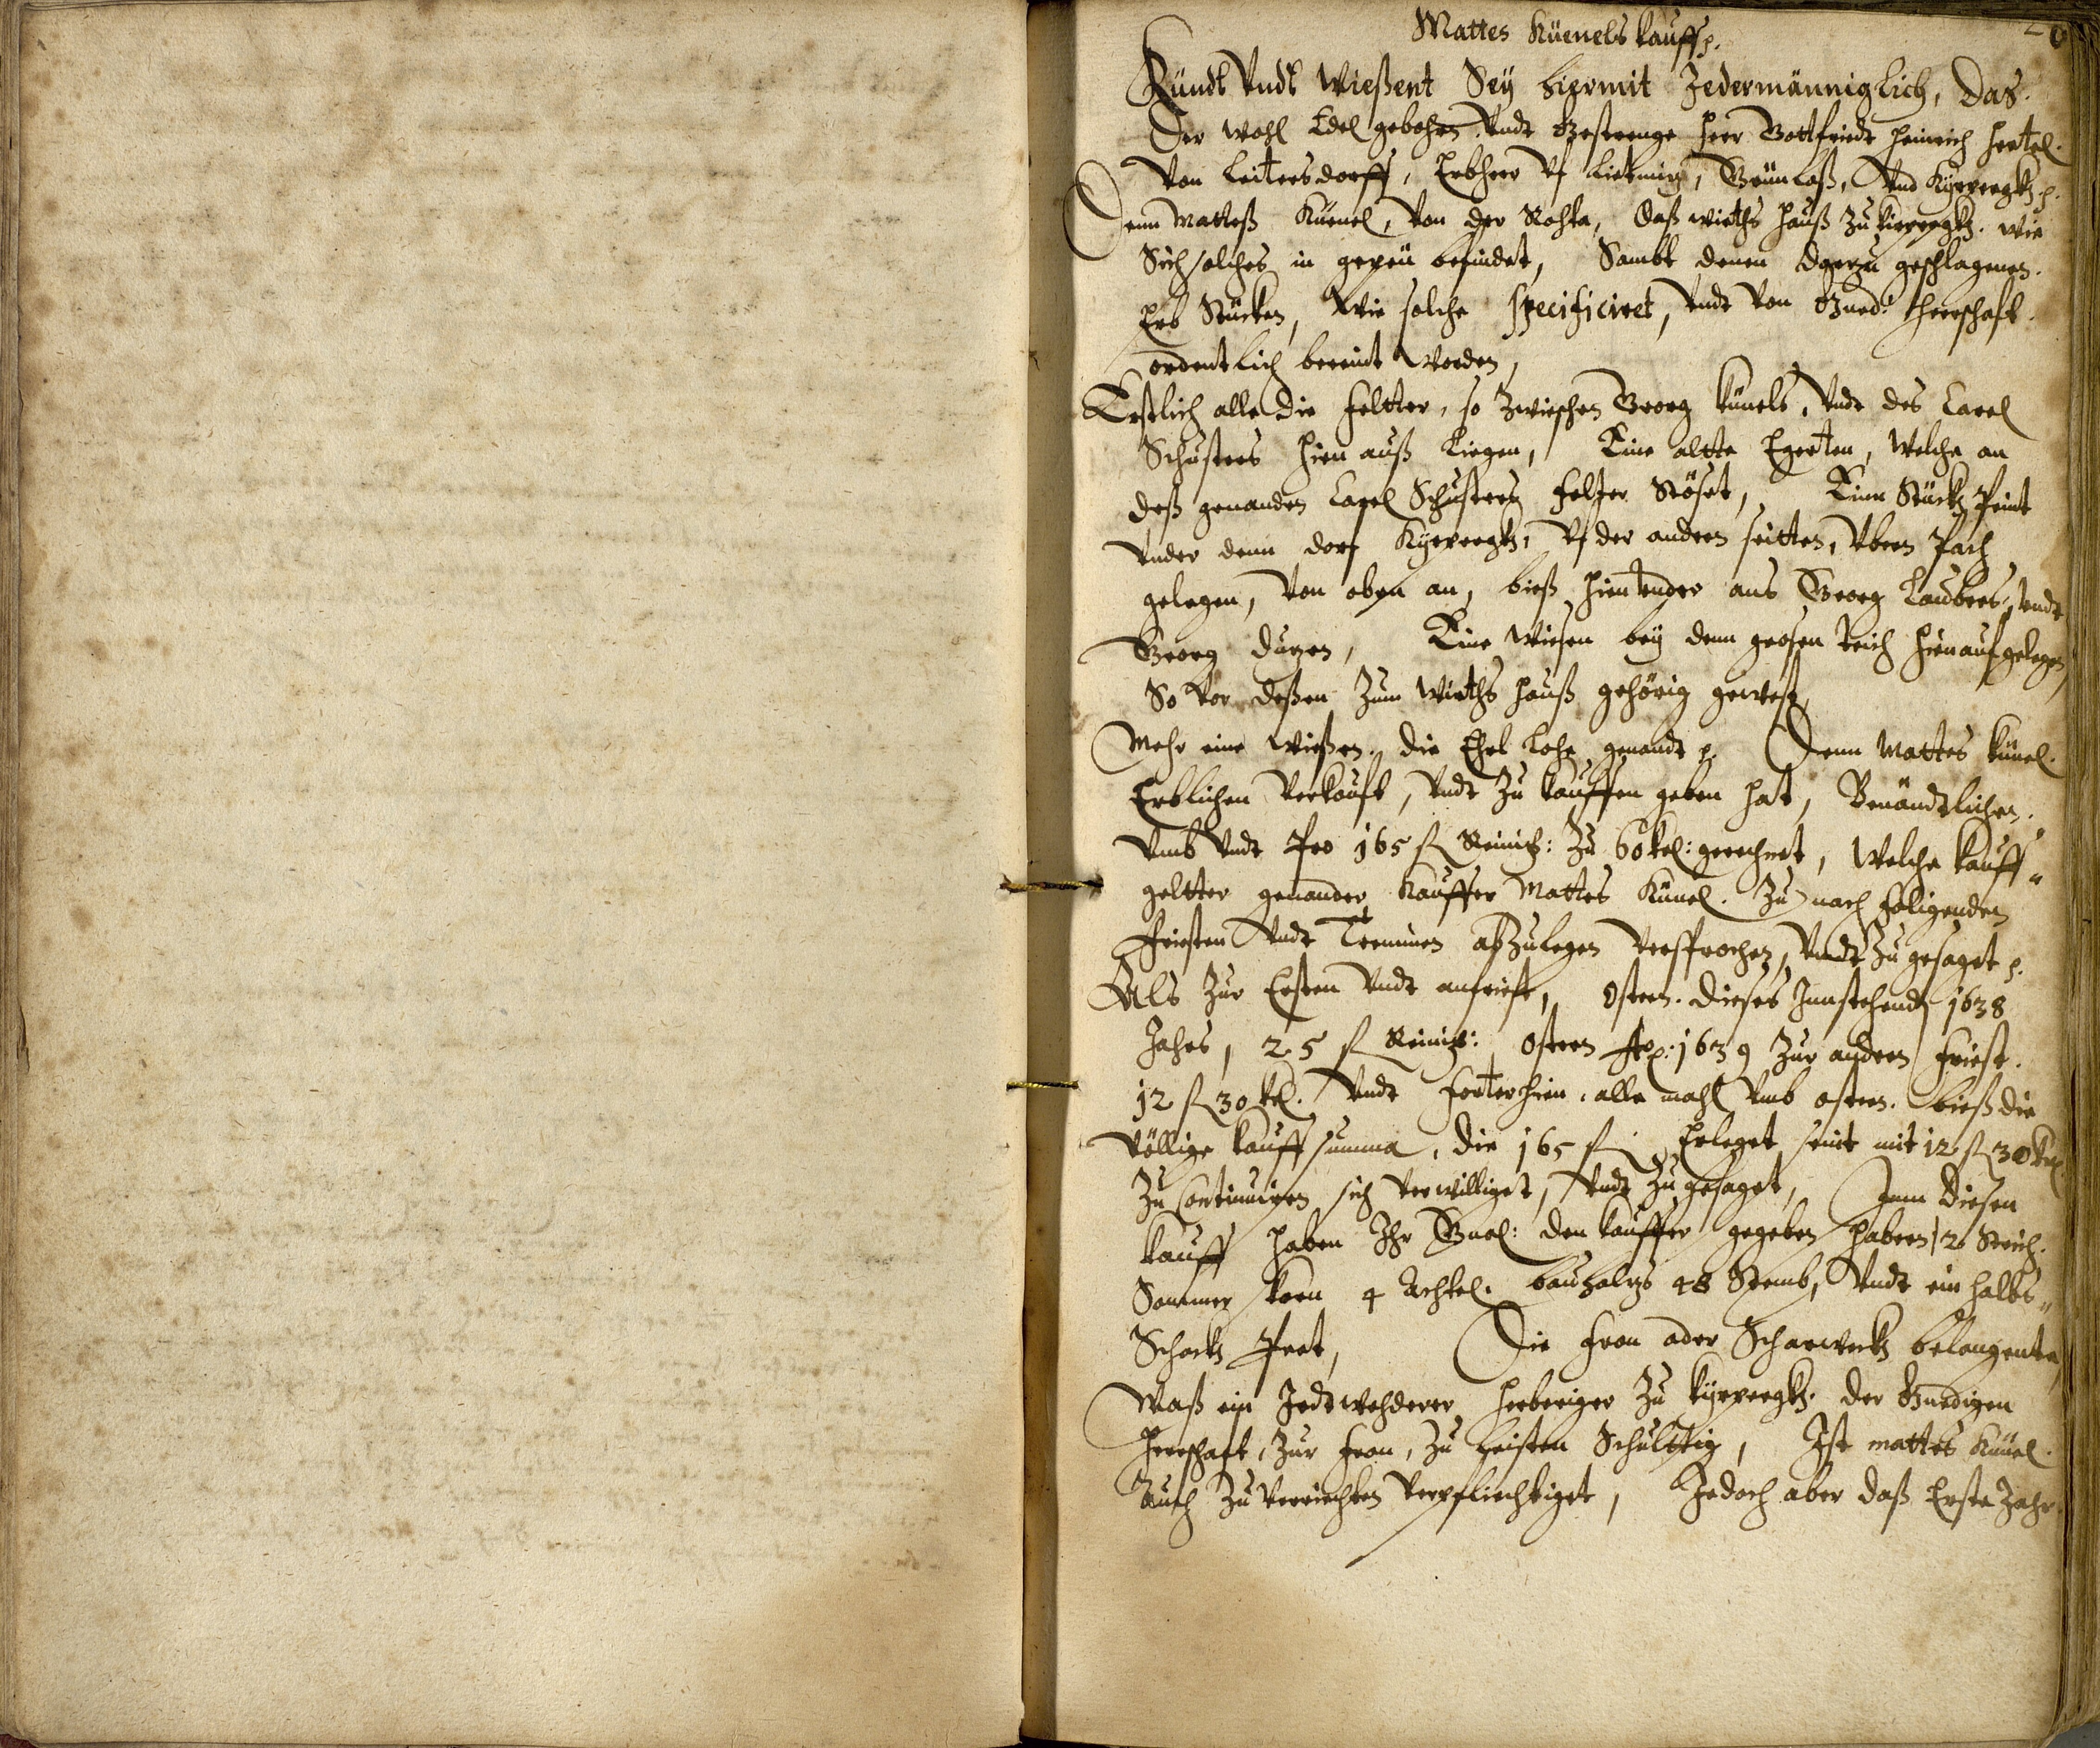 Mattes Küenels kauff p.
Kundt Undt Wießent Sey hiermit Jedermänniglich, Das
Der Wohl Edel gebohrn Undt Gestrenge Herr Gottfriedt Heinrich Hertel
Von Leitersdorff, Erbherr Uf Liebnitz, Grünlaß, Und p.
Denn Matteß Küenel, Von der Rohta, Daß wirths Hauß Zu wie
Sich solches in gepeü befindet, Sambt denen dartzu geschlagenen
Erb Stücken, Wie solche specificiret, Undt Von Gnedi: Herrschaft
ordentlich bereint Worden,
Erstlich alle die Feltter, so Zwieschen Georg Künels, Undt des Carel
Schusters hien auß Liegen, Eine altte Egerten, Welche an
deß genanden Carel Schusters Felter Stöset, Einn Stückh Peint
Under denn dorf Uf der andern seitten, Ubern Pach
gelegen, Von oben an, bieß hientunder ans Georg Laubers, Undt
Georg Eine Wiesen bey denn grosen teich hienauf gelegen,
So Vor deßen Zum Wirths Hauß gehörig geweßt,
Mehr eine Wießen, die Lohe genandt p. Denn Mattes Künel
Erblichen Verkauft, Undt Zu kauffen geben hat, Benändtlichen
Umb Undt Pro 165 fl Reinisch: Zu 60 kr: gerechnet, Welche kauff"
geltter genander Kauffer Mattes Künel Zu nach folgenden
Friesten Undt Terminen abZulegen Versprochen, Undt Zu gesaget p.
Als Zur Ersten Undt anfrist, Ostern dieses Jnnstehendt 1638
Jahrs, 25 fl Reinisch: Ostern Ao: 1639 Zur andern Friest
12 fl 30 kr. Undt Forterhien alle mahl Umb ostern bieß die
Völlige kauff summa, die 165 fl Erleget seint mit 12 fl 30 kr
Zu Continuiren sich Verwilliget, Undt Zu gesaget, Zum diesen
kauff haben Ihr Gnad: den kauffer gegeben Habern 12 Strich
Sommer korn 4 Achtel, bauholtz 48 Stemb, Undt ein halbs"
Schockh Pret, Die Fron oder Scharwerkh belangente
Waß ein Jedtwehderer Herberiger Zu der Gnedigen
Herrschaft, Zur Fron, Zu Leisten Schulttig, Ist mattes Künel
Auch Zu Verriechten Verpfliechtiget, Jedoch aber daß Erste Jahr